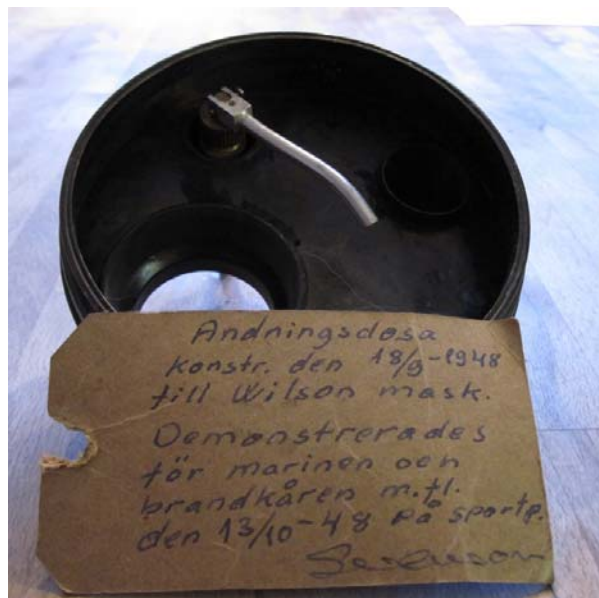 Andningsdosa
konstr. den 18/9-1948
till Wilson mask.
Demonstrerades
för marinen och
brandkåren m.fl.
den 13/10-48 på sportp.